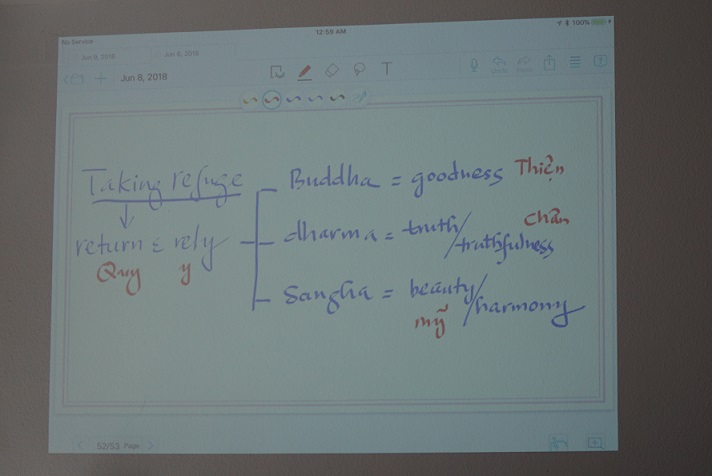 No Service
12:59 AM
100%
Jun 9, 2018
Jun 8, 2018
Jun 8, 2018
T
?
Undo
Taking refuge
return & rely
Quy y
Buddha = goodness Thiện
dharma = truth/truthfulness
Chân
Sangha = beauty/harmony
mỹ
52/53 Page